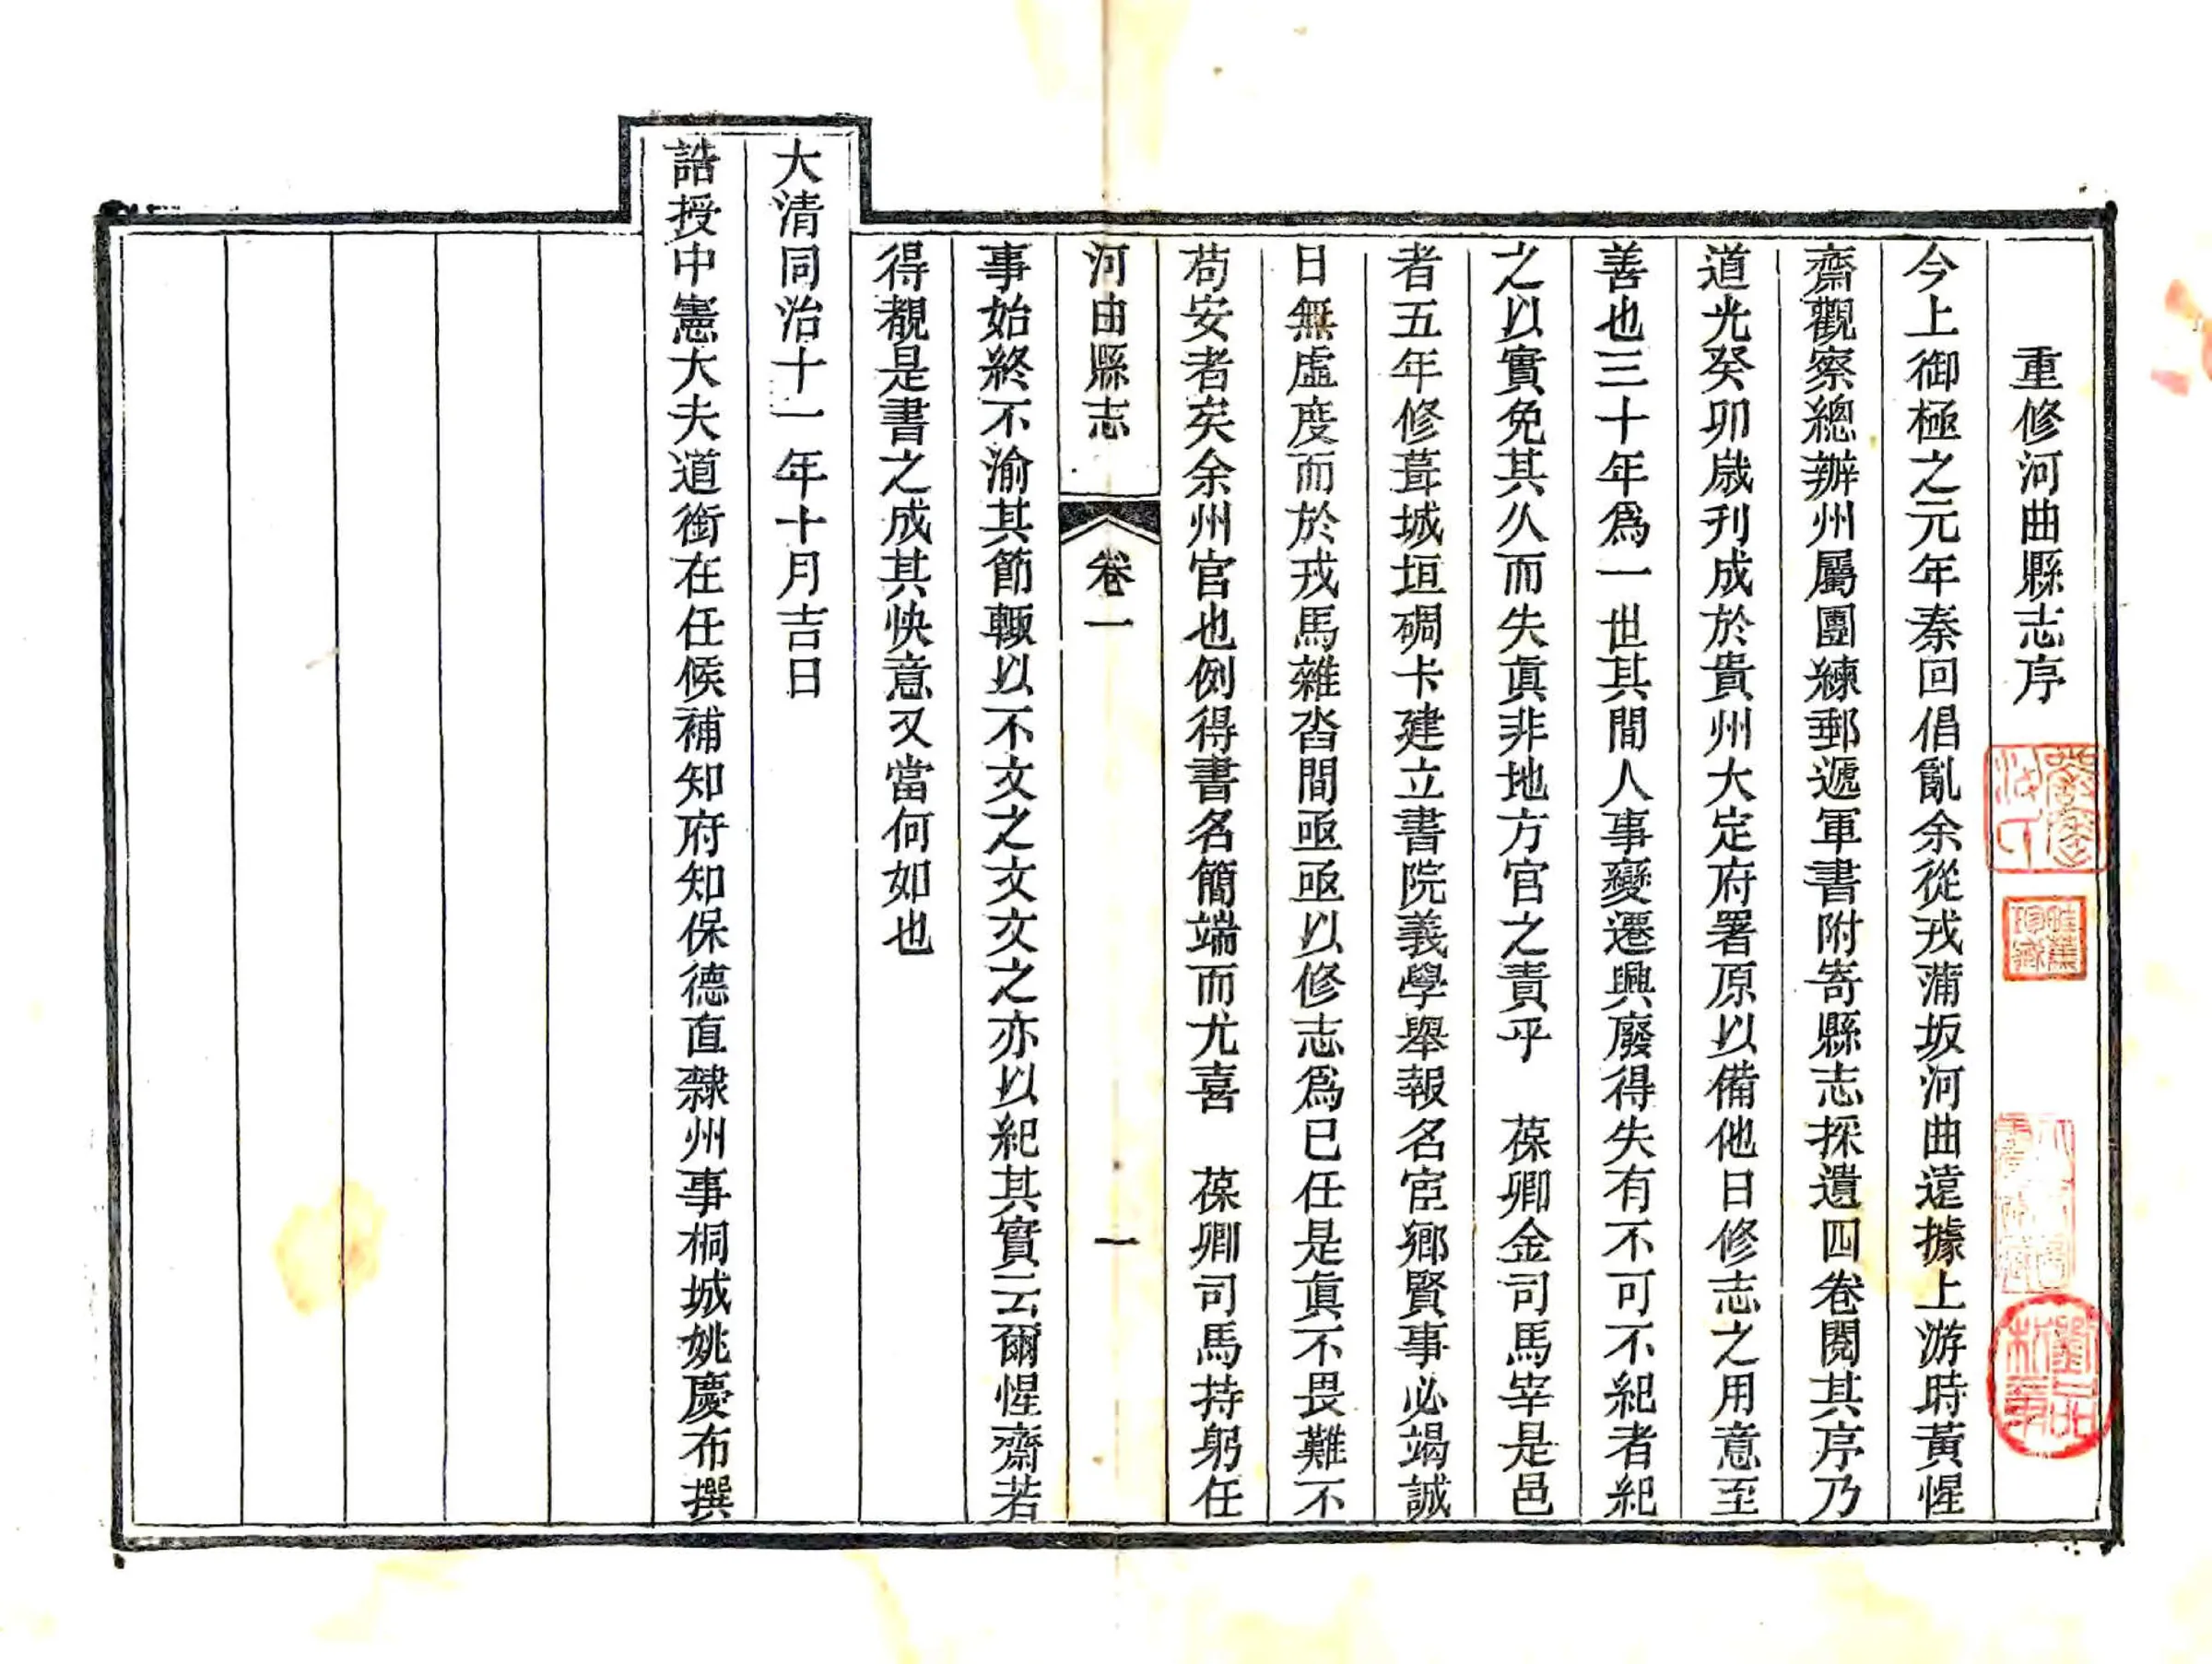 重修河曲縣志序
今上御極之元年秦回倡亂余從戎蒲坂河曲遠據上游時黃惺
齋觀察總辦州屬團練郵遞軍書附寄縣志採遺四卷閱其序乃
道光癸卯歲刋成於貴州大定府署原以備他日修志之用意至
善也三十年爲一世其間人事變遷興廢得失有不可不紀者紀
之以實免其久而失眞非地方官之責乎　葆卿金司馬宰是邑
者五年修葺城垣碉卡建立書院義學舉報名宦鄉賢事必竭誠
日無虛度而於戎馬雜沓間亟亟以修志爲已任是眞不畏難不
苟安者矣余州官也例得書名簡端而尤喜　葆卿司馬持躬任
河曲縣志　卷一　一
事始終不渝其節輙以不文之文文之亦以紀其實云爾惺齋若
得覩是書之成其快意又當何如也
大清同治十一年十月吉日
誥授中憲大夫道銜在任候補知府知保德直隸州事桐城姚慶布撰